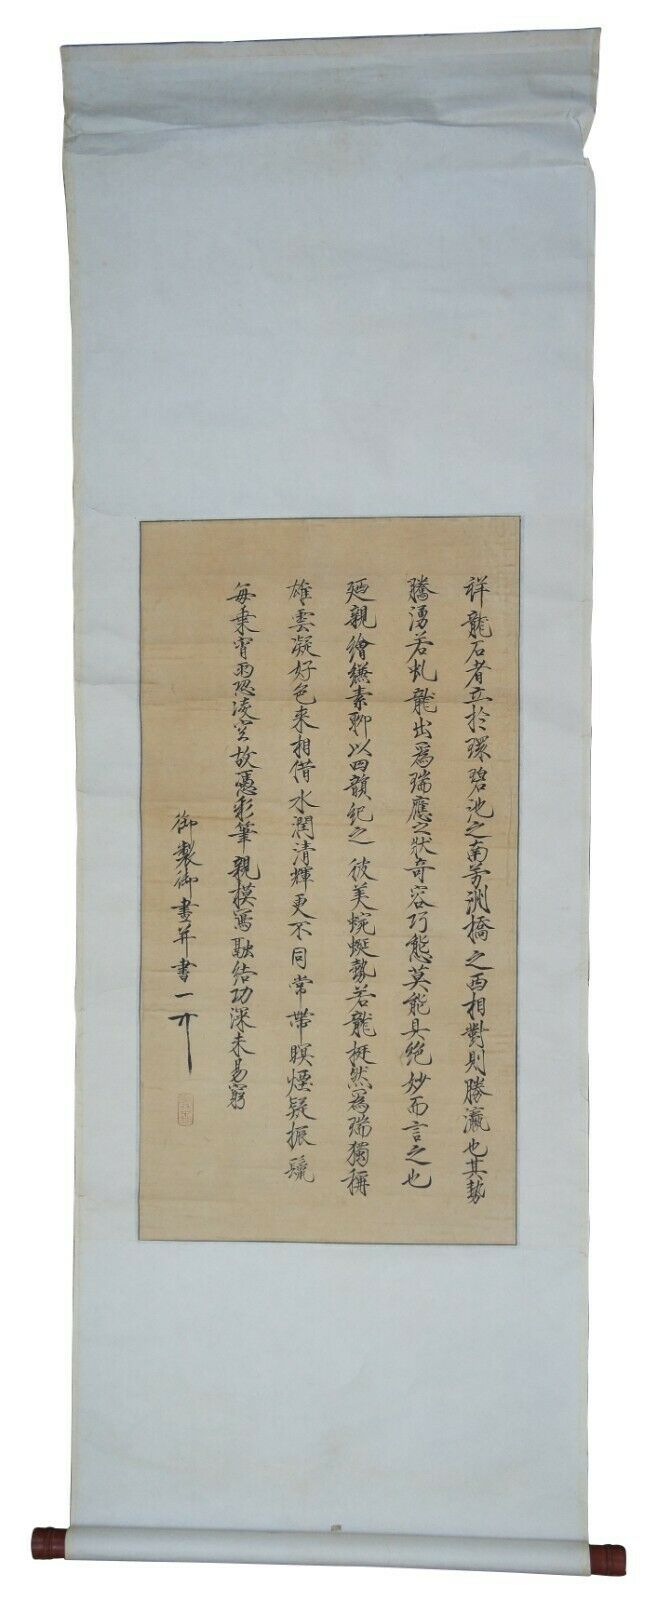 祥龍石者立於環碧池之南芳洲橋之西相對則勝瀛也其勢
騰湧若虬龍出爲瑞應之狀奇容巧態莫能具絕妙而言之也
廼親繪縑素聊以四韻紀之 彼美蜿蜒勢若龍挺然爲瑞獨稱
雄雲凝好色來相借水潤清輝更不同常帶暝煙疑振鬣
每乘宵雨恐凌空故憑彩筆親模寫融結功深未易窮
御製御畫并書